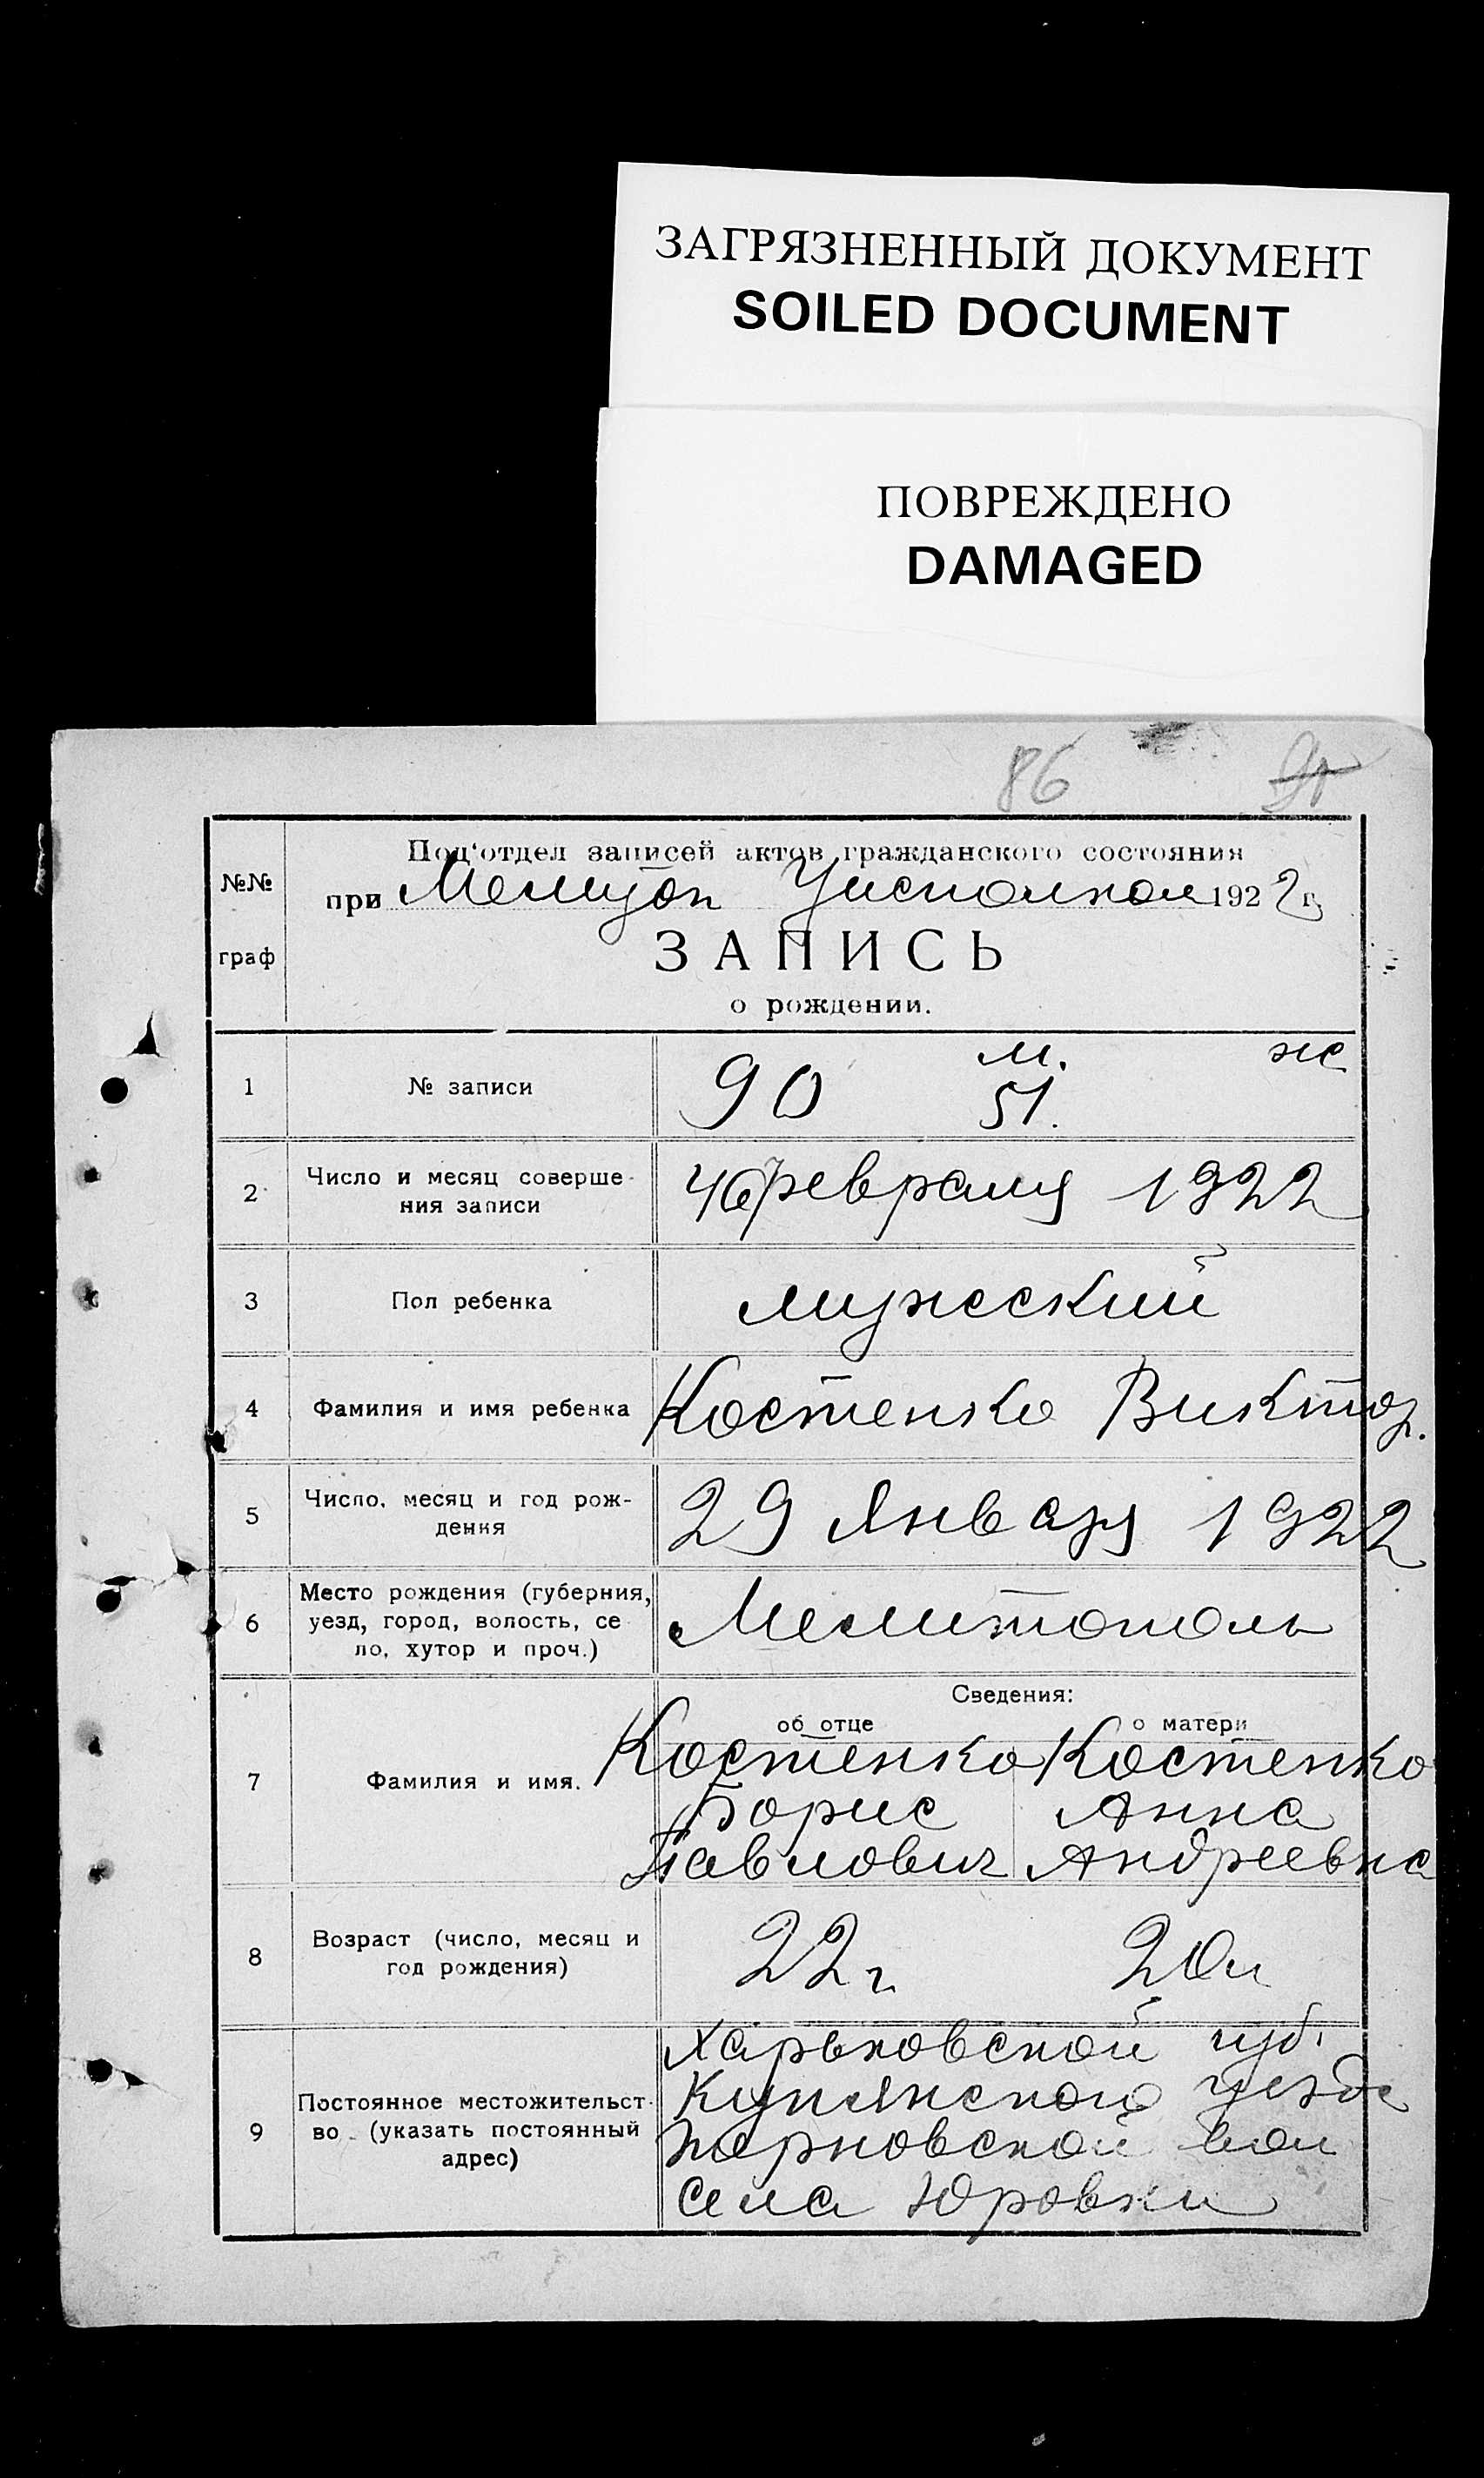 ЗАГРЯЗНЕННЫЙ ДОКУМЕНТ
SOILED DOCUMENT
ПОВРЕЖДЕНО
DAMAGED
86
№№
граф
Под‘отдел записей актов гражданского состояния
при Мелитоп Уисполком 1922 г.
ЗАПИСЬ
о рождении.
1 № записи 90 м. 51. ж
2 Число и месяц соверше-
ния записи февраля 1922
3 Пол ребенка мужеский
4 Фамилия и имя ребенка Костенко Виктор.
5 Число, месяц и год рож-
дения 29 Января 1922
6 Место рождения (губерния,
уезд, город, волость, се
ло, хутор и проч.) Мелитополь
Сведения:
об отце о матери
7 Фамилия и имя. Костенко Костенко
Борис Анна
Павлович Андреевна
8 Возраст (число, месяц и
год рождения) 22 г 20 л
9 Постоянное местожительст-
во (указать постоянный
адрес)
Харьковской губ.
Купянского уезда
вол
села Юровки